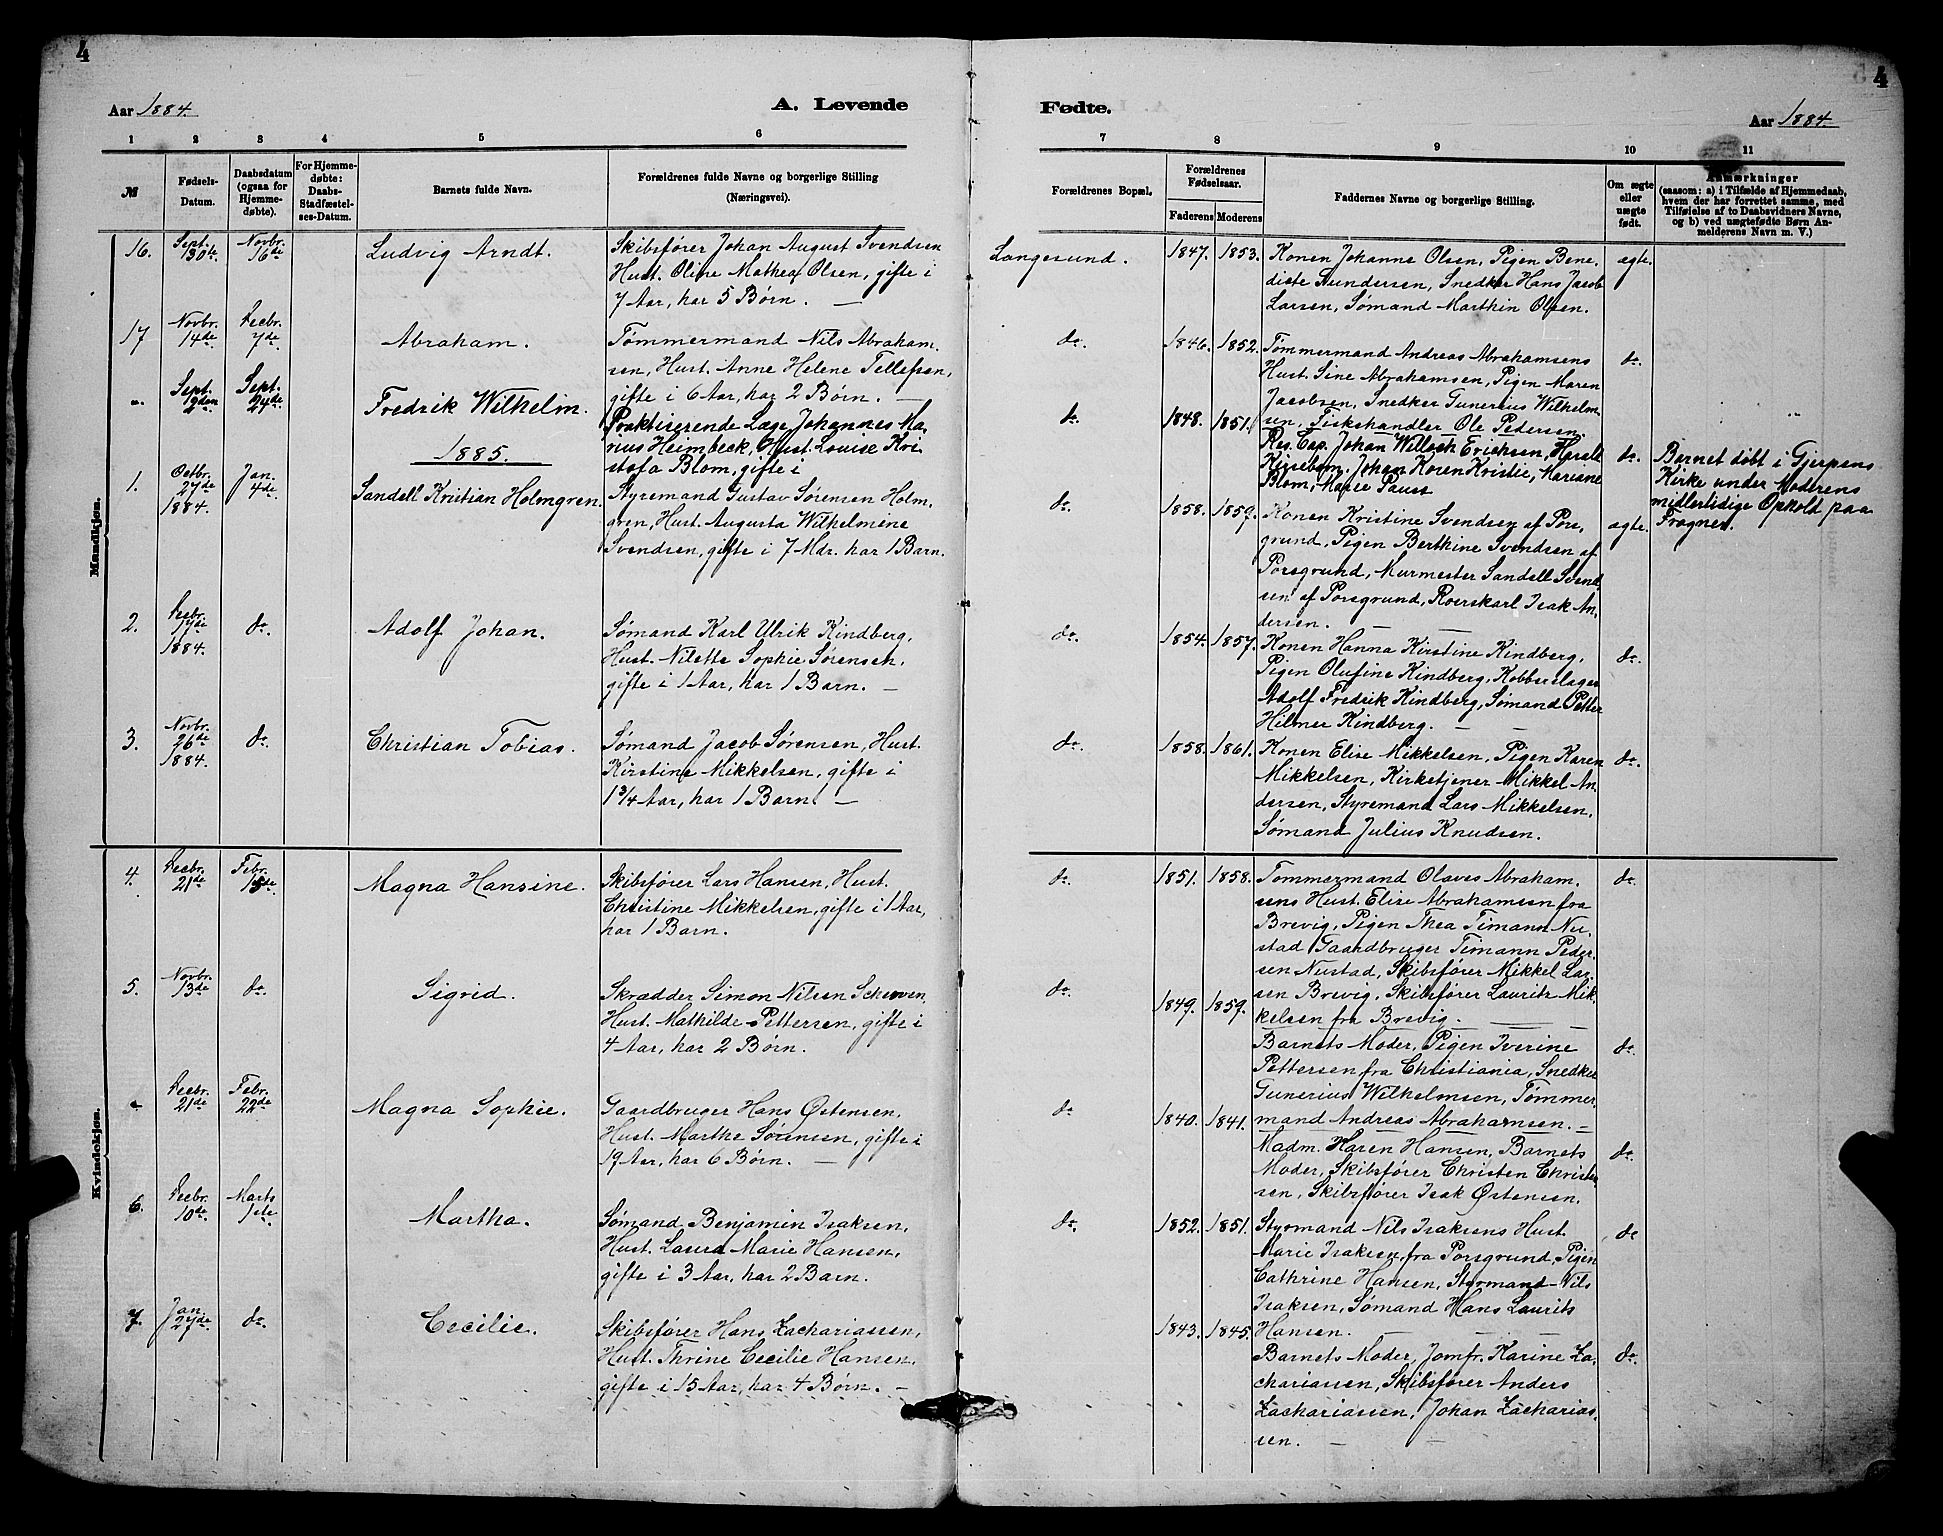 4
4
Aar 1884.
A. Levende
Fødte.
Aar 1884.
1 2 3 4 5 6
7 8 9 10 11
№
Fødsels-
Datum.
Daabsdatum
(ogsaa for
Hjemme-
døbte).
For Hjemme-
døbte:
Daabs-
Stadfæstel-
ses-Datum.
Barnets fulde Navn.
Forældrenes fulde Navne og borgerlige Stilling
(Næringsvei).
Forældrenes Bopæl.
Forældrenes
Fødselsaar.
Faderens
Moderens
Faddernes Navne og borgerlige Stilling.
Om ægte
eller
uægte
født.
Anmærkninger
(saasom: a) i Tilfælde af Hjemmedaab,
hvem der har forrettet samme, med
Tilføielse af to Daabsvidners Navne,
og b) ved uægtefødte Børn An-
melderens Navn m. V.)
Mandkjøn.
16.
Sept.
30te
Novbr.
16de
Ludvig Arndt.
Skibsfører Johan August Svendsen
Hust. Oline Mathea Olsen, gifte i
7 Aar, har 5 Børn. —
Langesund.
1847. 1853.
Konen Johanne Olsen, Pigen Bene-
dicte Gundersen, Snedker Hans Jacob
Larsen, Sømand Marthin Olsen.
ægte.
17
Novbr.
14de
Decbr.
7de
Abraham.
Tømmermand Nils Abraham-
sen, Hust. Anne Helene Tellefsen,
gifte i 6 Aar, har 2 Børn. —
do.
1846. 1852.
Tømmermand Andreas Abrahamsens
Hust. Sine Abrahamsen, Pigen Maren
Jacobsen, Snedker Gunerius Wilhelm-
sen, Fiskehandler Ole Pedersen.
do.
Sept.
Sept.
24de
Fredrik Wilhelm.
Praktiserende Læge Johannes Ma-
rius Heimbeck, Hust. Louise Kri-
stofa Blom, gifte i
do.
1848. 1851.
Res. Cap. Johan Willoch Erichsen, Harald
Kirsebom, Johan Koren Kristie, Mariane
Blom, Marie Pauss
do.
Barnet døbt i Gjerpens
Kirke under Moderens
midlertidige Ophold paa
Frogner.
1885.
1.
Octbr.
27de
1884.
Jan.
4de
Sandell Kristian Holmgren.
Styremand Gustav Sørensen Holm-
gren, Hust. Augusta Wilhelmine
Svendsen, gifte i 7 Mdr. har 1 Barn.
do.
1858. 1859.
Konen Kristine Svendsen af Pors-
grund, Pigen Berthine Svendsen af
Porsgrund, Murmester Sandell Svend-
sen af Porsgrund, Roerskarl Isak An-
dersen. — —
ægte.
2.
Decbr.
17de
1884.
do.
Adolf Johan.
Sømand Karl Ulrik Kindberg,
Hust. Nilette Sophie Sørensen,
gifte i 1 Aar, har 1 Barn. —
do.
1854. 1857.
Konen Hanna Kirstine Kindberg,
Pigen Olufine Kindberg, Kobberslager
Adolf Fredrik Kindberg, Sømand Petter
Hilmer Kindberg. — —
do.
3.
Novbr.
26de
1884.
do.
Christian Tobias.
Sømand Jacob Sørensen, Hust.
Kirstine Mikkelsen, gifte i
1 3/4 Aar, har 1 Barn. —
do.
1858. 1861.
Konen Elise Mikkelsen, Pigen Karen
Mikkelsen, Kirketjener Mikkel An-
dersen, Styremand Lars Mikkelsen,
Sømand Julius Knudsen.
do.
Kvindekjøn.
4.
Decbr.
21de
Febr.
15de
Magna Hansine.
Skibsfører Lars Hansen, Hust.
Christine Mikkelsen, gifte i 1 Aar,
har 1 Barn.
do.
1851. 1858.
Tømmermand Olaves Abraham-
sens Hust. Elise Abrahamsen fra
Brevig, Pigen Thea Timann Nu-
stad Gaardbruger Timann Peder-
sen Nustad, Skibsfører Mikkel Lar-
sen Brevig, Skibsfører Laurits Mik-
kelsen fra Brevig. — —
do.
5.
Novbr.
13de
do.
Sigrid.
Skrædder Simon Nilsen Scherven,
Hust. Mathilde Pettersen, gifte i
4 Aar, har 2 Børn.
do.
1849. 1859.
Barnets Moder, Pigen Iverine
Pettersen fra Christiania, Snedker
Gunerius Wilhelmsen, Tømmer-
mand Andreas Abrahamsen. —
do.
Decbr.
21de
Febr.
22de
Magna Sophie.
Gaardbruger Hans Østensen,
Hust. Marthe Sørensen, gifte i
19 Aar, har 6 Børn. —
do.
1840. 1841.
Madm. Karen Hansen, Barnets
Moder, Skibsfører Christen Christen-
sen, Skibsfører Isak Østensen.
do.
6.
Decbr.
10de
Marts
1ste
Martha.
Sømand Benjamin Isaksen,
Hust. Laura Marie Hansen,
gifte i 3 Aar, har 2 Barn.
do.
1852. 1851.
Styrmand Nils Isaksens Hust.
Marie Isaksen, fra Porsgrund, Pigen
Cathrine Hansen, Styrmand Nils
Isaksen, Sømand Hans Laurits
Hansen. — — —
do
7.
Jan.
27de
do.
Cecilie.
Skibsfører Hans Zachariassen,
Hust. Thrine Cecilie Hansen,
gifte i 15 Aar, har 4 Børn. —
1843. 1845.
Barnets Moder, Jomfr. Karine Za-
chariassen, Skibsfører Anders
Zachariassen, Johan Zacharias-
sen. — —
do.